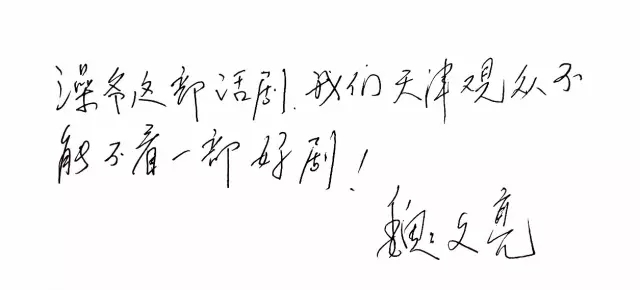 澡爷这部话剧.我们天津观众不
能不看一部好剧！
魏文亮